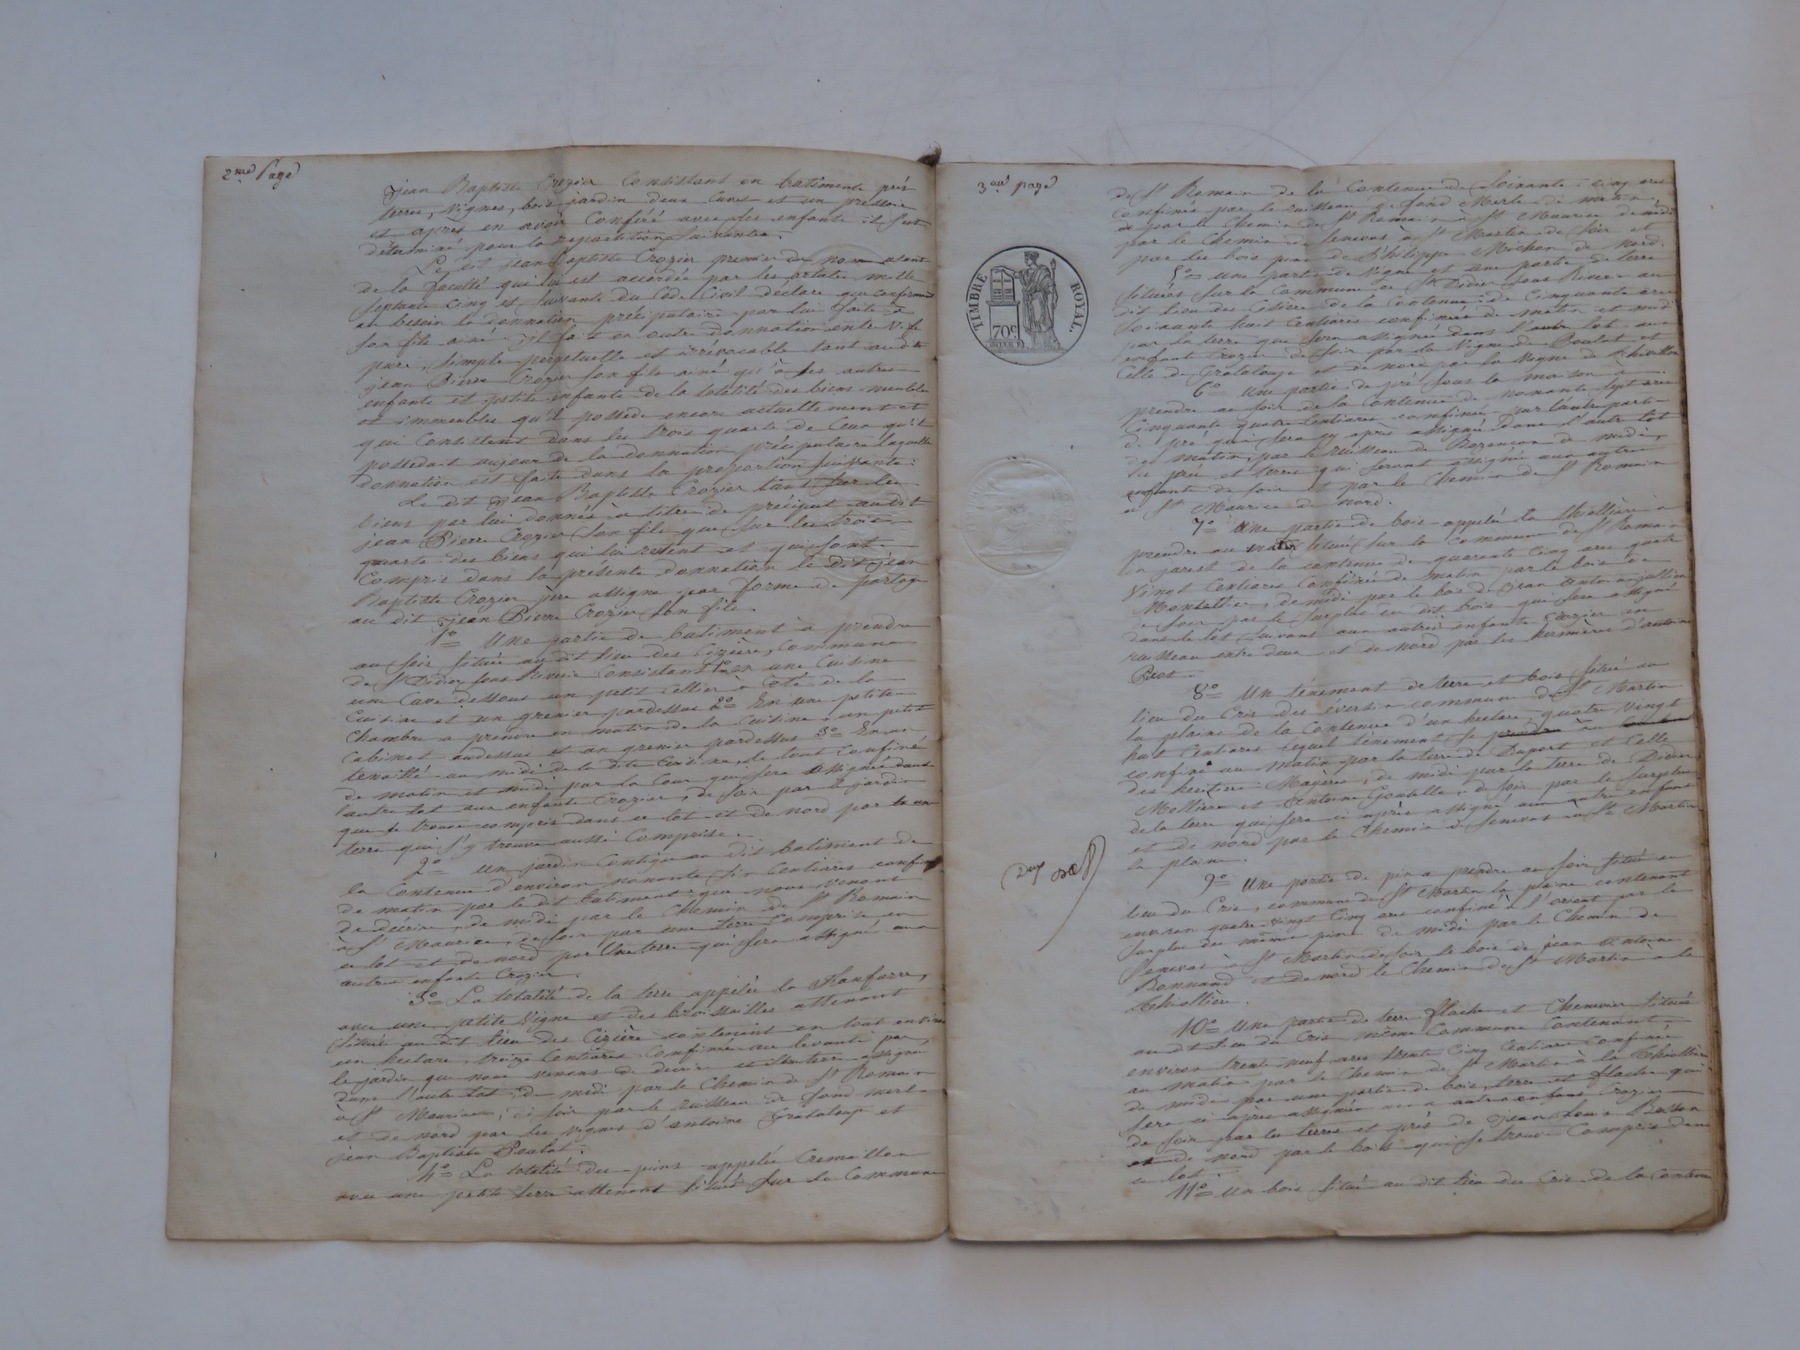 2me Page
Jean Baptiste Crozier Consistant en batiments prés
terres, vignes, bois jardin deux Cuves et un pressoir
et après en avoir Conféré avec ses enfants il s'est
déterminé pour la repartition suivante.
Le dit Jean Baptiste Crozier premier du nom usant
de la faculté qui lui est accordée par les articles mille
Septante Cinq et suivants du Code Civil déclare que confirmant
au besoin la donnation précipulaire par lui faite à
son fils ainé, il fait en outre donnation entre vifs
pure, simple perpetuelle et irrévocable tant au dit
Jean Pierre Crozier son fils ainé qu'à ses autres
enfants et petits enfants de la totalité des biens meubles
et immeubles qu'il possède encore actuellement et
qui Consistent dans les trois quarts de Ceux qu'il
possedait au jour de la donnation précipulaire laquelle
donnation est faite dans la proportion suivante:
Le dit Jean Baptiste Crozier tant sur les
biens par lui donnés à titre de préciput au dit
Jean Pierre Crozier son fils que sur les trois
quarts des biens qui lui restent et qui sont
Compris dans la présente donnation le dit Jean
Baptiste Crozier père assigne par forme de partage
au dit Jean Pierre Crozier son fils.
1o Une partie de batiment à prendre
au soir située au dit lieu des Cizière, Commune
de St Didier sous Riverie Consistant 1o en une Cuisine
une Cave dessous un petit cellier à Coté de la
Cuisine et un grenier pardessus 2o En une petite
Chambre à prendre en matin de la Cuisine, un petit
Cabinet audessus et un grenier pardessus 3o En un
tenailler au midi de la dite Cuisine, le tout Confiné
de matin et midi par la Cour qui sera assignée dans
l'autre lot aux enfants Crozier, de soir par le jardin
que se trouve compris dans ce lot et de nord par la
terre que s'y trouve aussi Comprise.
2o un jardin Contigu au dit batiment de
la Contenue d'environ nonante six Centiares confiné
de matin par le dit batiment que nous venons
de décrire, de midi par le Chemin de St Romain
à St Maurice, de soir par une terre Comprise en
ce lot et de nord par une terre qui sera assigné aux
autres enfants Crozier.
3o La totalité de la terre appelée la
avec une petite Vigne et des broussailles attenant
situé au dit lieu des Cizière contenant en tout environ
un hectare, treize Centiares Confiné au levant par
le jardin que nous venons de décrire et une terre assignée
dans l'autre lot, de midi par le Chemin de St Romain
à St Maurice, de soir par le ruisseau de fond merle
et de nord par les vignes d'antoine Grataloup et
Jean Baptiste Poulat.
4o La totalité des pins appelée Cremaillon
avec une petite terre attenant situés sur la Commune
3eme page
de St Romain de la Contenue de Soixante-Cinq ares
confinée par le ruisseau de fond Merle de matin,
par le Chemin de St Romain à St Maurice de midi
par le Chemin de Senevas à St Martin de soir et
par les bois pins de Philippe Michon de nord.
5o une partie de Vigne et une partie de terre
situées sur la Commune de St Didier sous Riverie au
dit lieu des Cizière de la Contenue de Cinquante ares
soixante huit Centiares confinée de matin et midi
par la terre qui sera assignée dans l'autre lot aux
enfants Crozier de soir par la Vigne de Poulat et
Celle de Grataloup et de nord par la Vigne de Thivillon
6o une partie de pré sous la maison à
prendre au soir de la Contenue de nonante sept ares
Cinquante quatre Centiares confinée par l'autre partie
de pré qui sera cy après assignée dans l'autre lot
de matin, par le ruisseau de Bozançon de midi,
les prés et terres qui seront assignés aux autres
enfants de soir et par le Chemin de St Romain
à St Maurice de nord.
7o Une partie de bois appelé la Thiollière à
prendre au matin située sur la Commune de St Romain
en jarest de la contenue de quarante Cinq ares quatre
Vingt Centiares Confinée de matin par le bois de
Montellier, de midi par le bois de Jean antoine
de soir par le surplus du dit bois qui sera assigné
dans le lot suivant aux autres enfants Crozier un
ruisseau entre deux et de nord par les hermières d'antoine
Piot.
8o Un tenement de terre et bois situé au
lieu du Cris des commune de St Martin
la plaine de la Contenue d'un hectare, quatre vingt
huit Centiares lequel tenement se
confiné au matin par la terre de Duport et Celle
des heritiers Mazère, de midi par la terre de Didier
Mollière et antoine Goutelle, de soir par le surplus
de la terre qui sera ci après assigné aux autres enfants
et de nord par le Chemin de Senevas à St Martin
la plaine.
9o Une portion de pins à prendre au soir située au
lieu du Cris, commune de St Martin la plaine contenant
environ quatre vingt Cinq ares confiné à l'orient par le
surplus du même pins de midi par le Chemin de
Senevas à St Martin de soir le bois de jean antoine
Bonnand et de nord le Chemin de St Martin à la
Thiollière.
10o Une partie de terre flache et Chenevier située
au dit lieu du Cris même Commune Contenant
environ trente neuf ares trente Cinq Centiares Confinée
au matin par le Chemin de St Martin à la Thiollière
de midi par une partie de bois, terre et flache qui
sera ci après assignée aux autres enfants Crozier
de soir par les terres et près de Jean Louis Besson
et de nord par le bois qui se trouve Compris dans
ce lot.
11o Un bois situé au dit lieu du Cris de la Contenue
TIMBRE ROYAL.
70c.